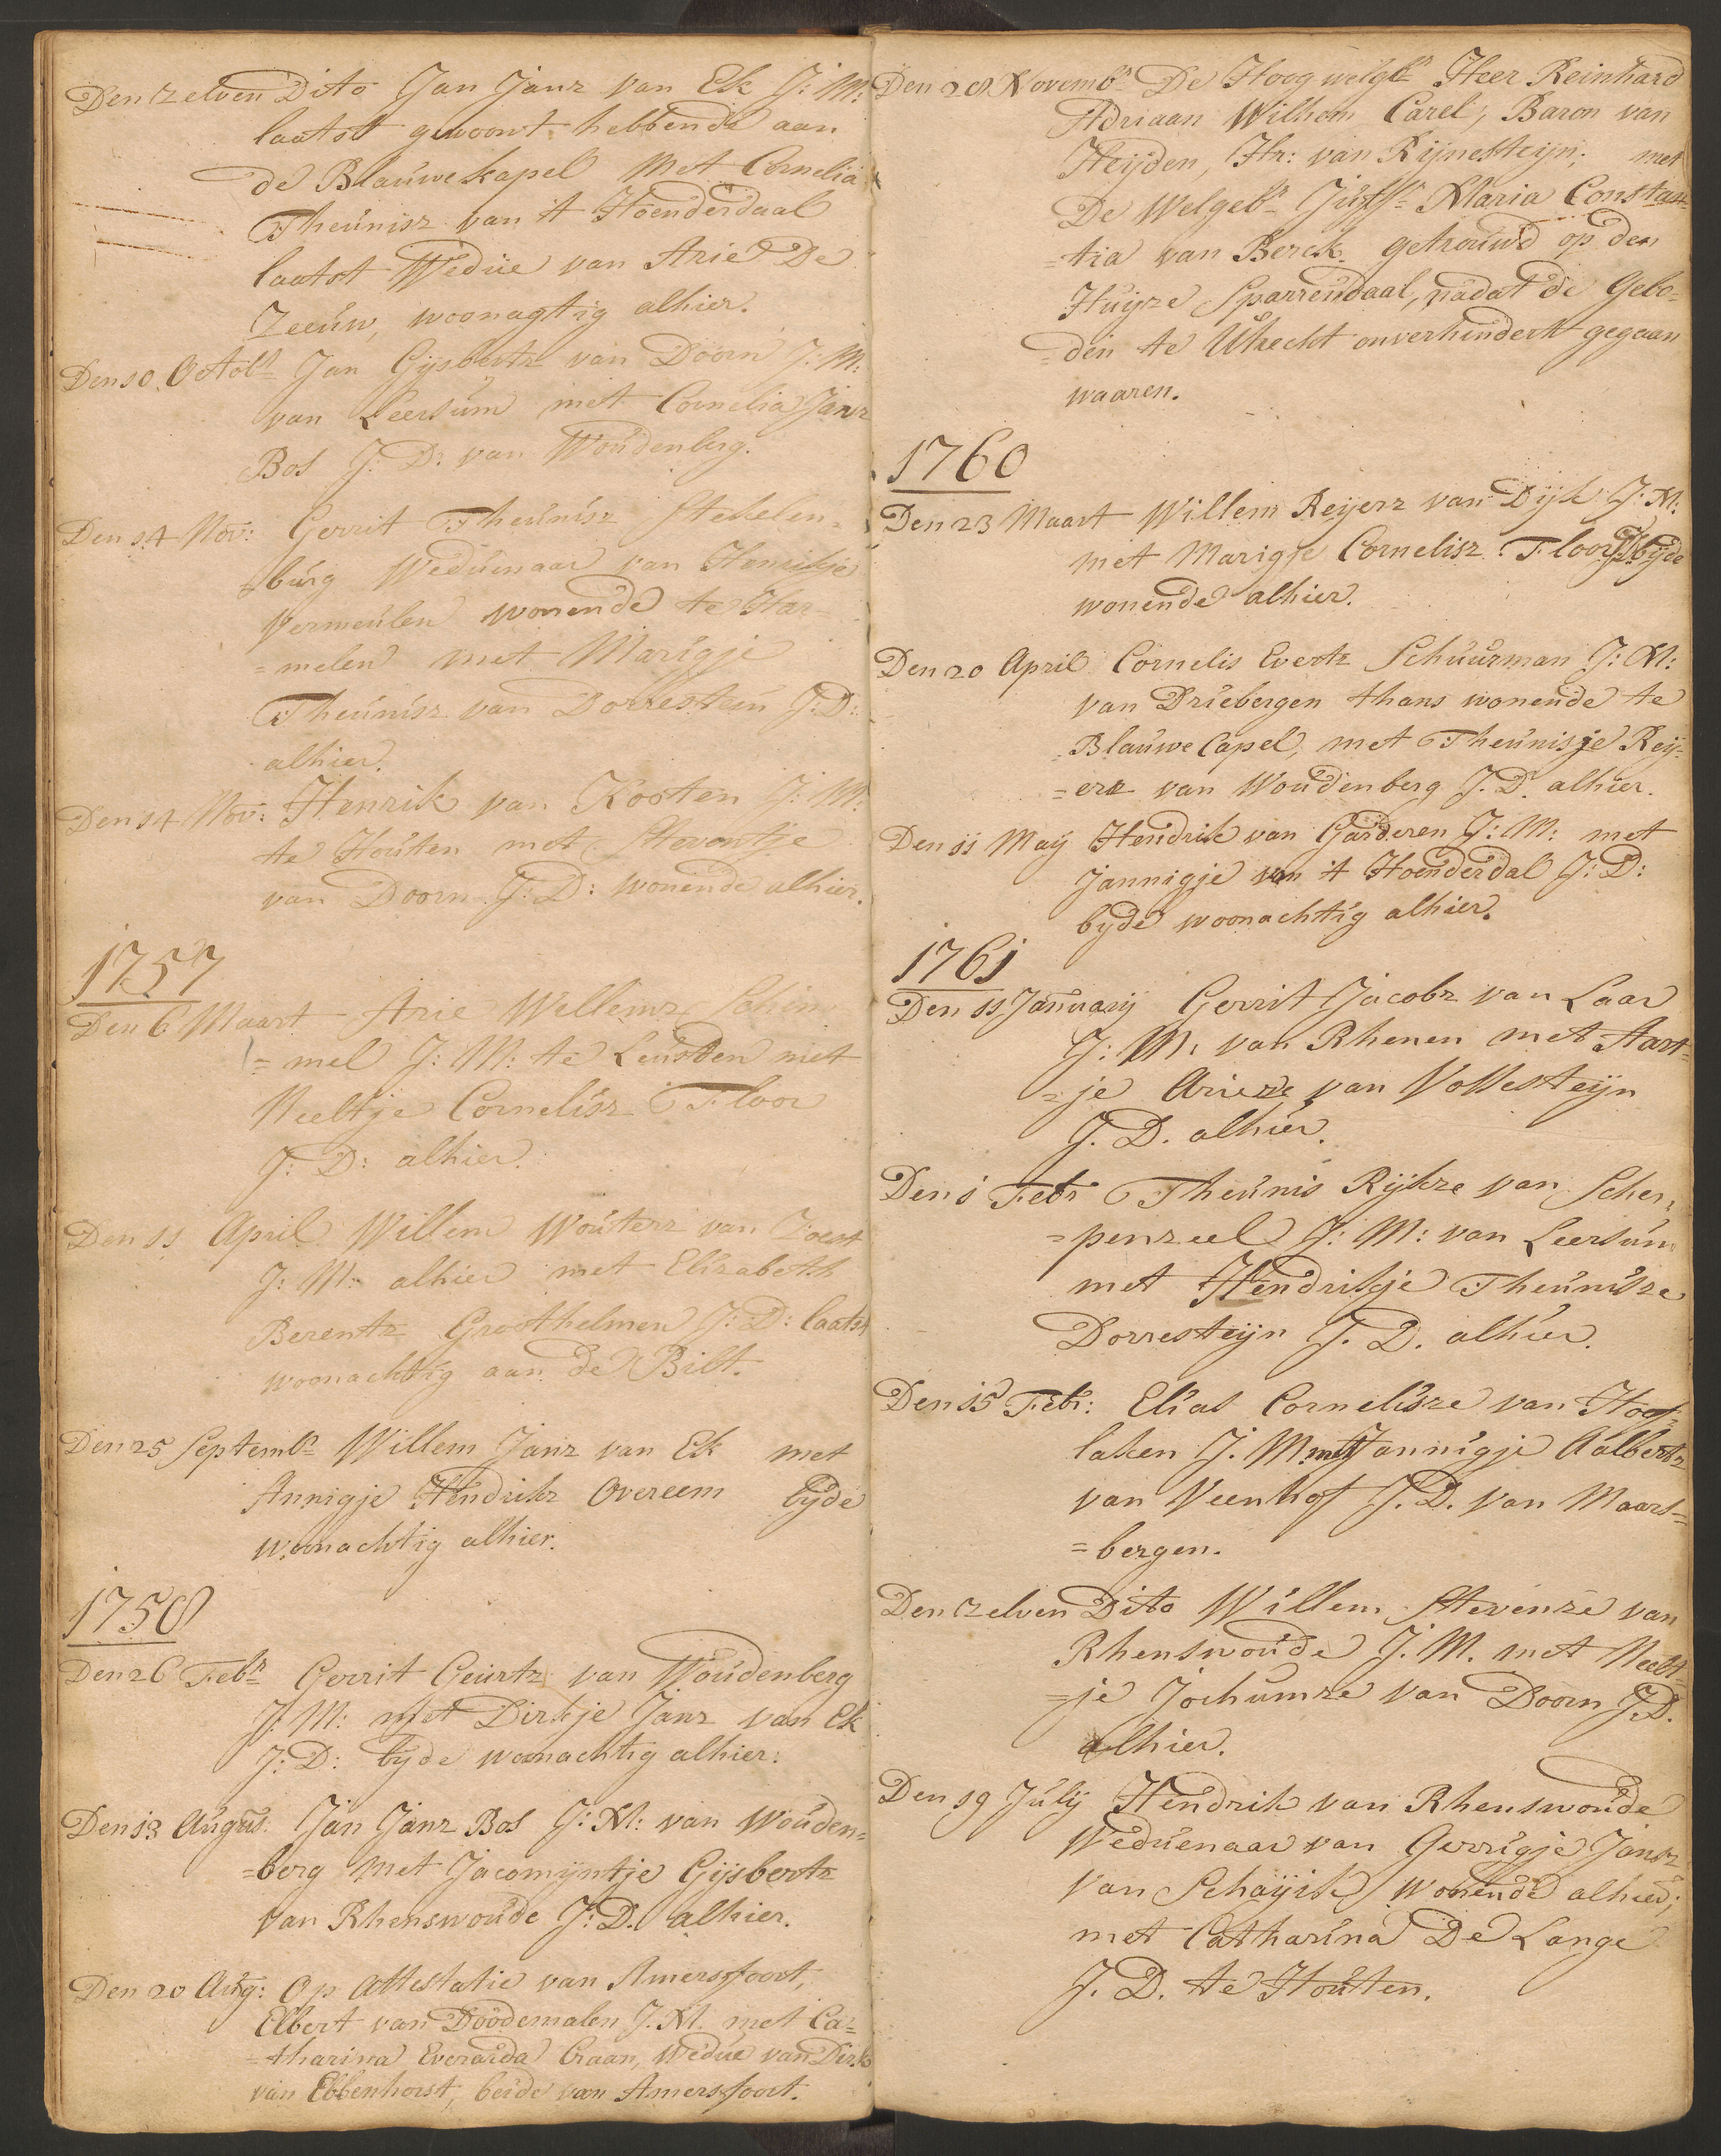 Den zelven Dito Jan Janz van Ek J: M:
laatst gewoont hebbende aan
de Blaúwekapel Met Cornelia
Theúnisz van 't Hoenderdaal
laatst Wedúe van Arie De
Zeeúw, woonagtig alhier.
Den 10 Octobr Jan Gijsbertz van Doorn J: M:
van Leersúm met Cornelia Janz
Bos J: D: van Woúdenberg.
Den 14 Nov: Gerrit Theúnisz Stekelen=
búrg Wedúenaar van Henrikje
Vermeúlen wonende te Har=
=melen met Marigje
Theúnisz van Dorrestein J: D:
alhier.
Den 14 Nov: Henrik van Kooten J: M:
te Hoúten met Stevontje
van Doorn J: D: wonende alhier.
1757
Den 6 Maart Arie Willemz Schim
=mel J: M: te Leusden met
Neeltje Cornelisz Floor
J: D: alhier.
Den 11 April Willem Woúterz van Zoest
J: M: alhier met Elizabeth
Berentz Groothelmen J: D: laatst
woonachtig aan de Bilt.
Den 25 Septembr Willem Janz van Ek met
Annigje Hendrikz Overeem byde
woonachtig alhier.
1758
Den 26 Febr Gerrit Geúrtz van Woúdenberg
J: M: met Dirkje Janz van Ek
J: D: byde woonachtig alhier.
Den 13 Aúgús: Jan Janz Bos J: M: van Woúden=
=berg Met Jacomÿntje Gijsbertz
van Rhenswoúde J: D. alhier.
Den 20 Aúg: Op Attestatie van Amersfoort,
Elbert van Doodemalen J. M. met Ca=
=tharina Everarda Craan, Wedúe van Dirk
van Ebbenhorst, beide van Amersfoort.
Den 28 Novembr De Hoog welgebr Heer Reinhard
Adriaan Wilhem Carel, Baron van
Heijden, Hr: van Rijnesteijn; met
De Welgebr Júffr Maria Constan=
=tia van Berck. getrouwd op den
Húijze Sparrendaal, nadat de Gebo=
=den te Utrecht onverhindert gegaan
waaren.
1760
Den 23 Maart Willem Reijerz van Dijk J: M:
met Marigje Cornelisz Floor J:D: byde
wonende alhier.
Den 20 April Cornelis Evertz Schúúrman J: M:
van Driebergen thans wonende te
Blaúwe Capel, met Theúnisje Reij=
=erz van Woúdenberg J. D. alhier.
Den 11 Maij Hendrik van Garderen J: M: met
Jannigje van 't Hoenderdal J: D:
byde woonachtig alhier.
1761
Den 11 Janúarij Gerrit Jacobz van Laar
J: M: van Rhenen met Aart=
=je Arieze van Vollesteijn
J. D. alhier.
Den 1 Febr Theúnis Rijkze van Scher=
=penzeel J: M: van Leersúm
met Hendrikje Theúnisze
Dorresteijn J. D. alhier.
Den 15 Febr: Elias Cornelisze van Hoof=
laken J. M met Jannigje Aalbertz
van Veenhof J. D. van Maars=
=bergen.
Den zelven Dito Willem Stevenze van
Rhenswoúde J. M. met Neelt=
=je Jochúmze van Doorn J.D.
alhier.
Den 19 Júlij Hendrik van Rhenswoúde
Wedúenaar van Gerrigje Jansz
van Schaÿik, wonende alhier;
met Catharina De Lange
J. D. te Hoúten.